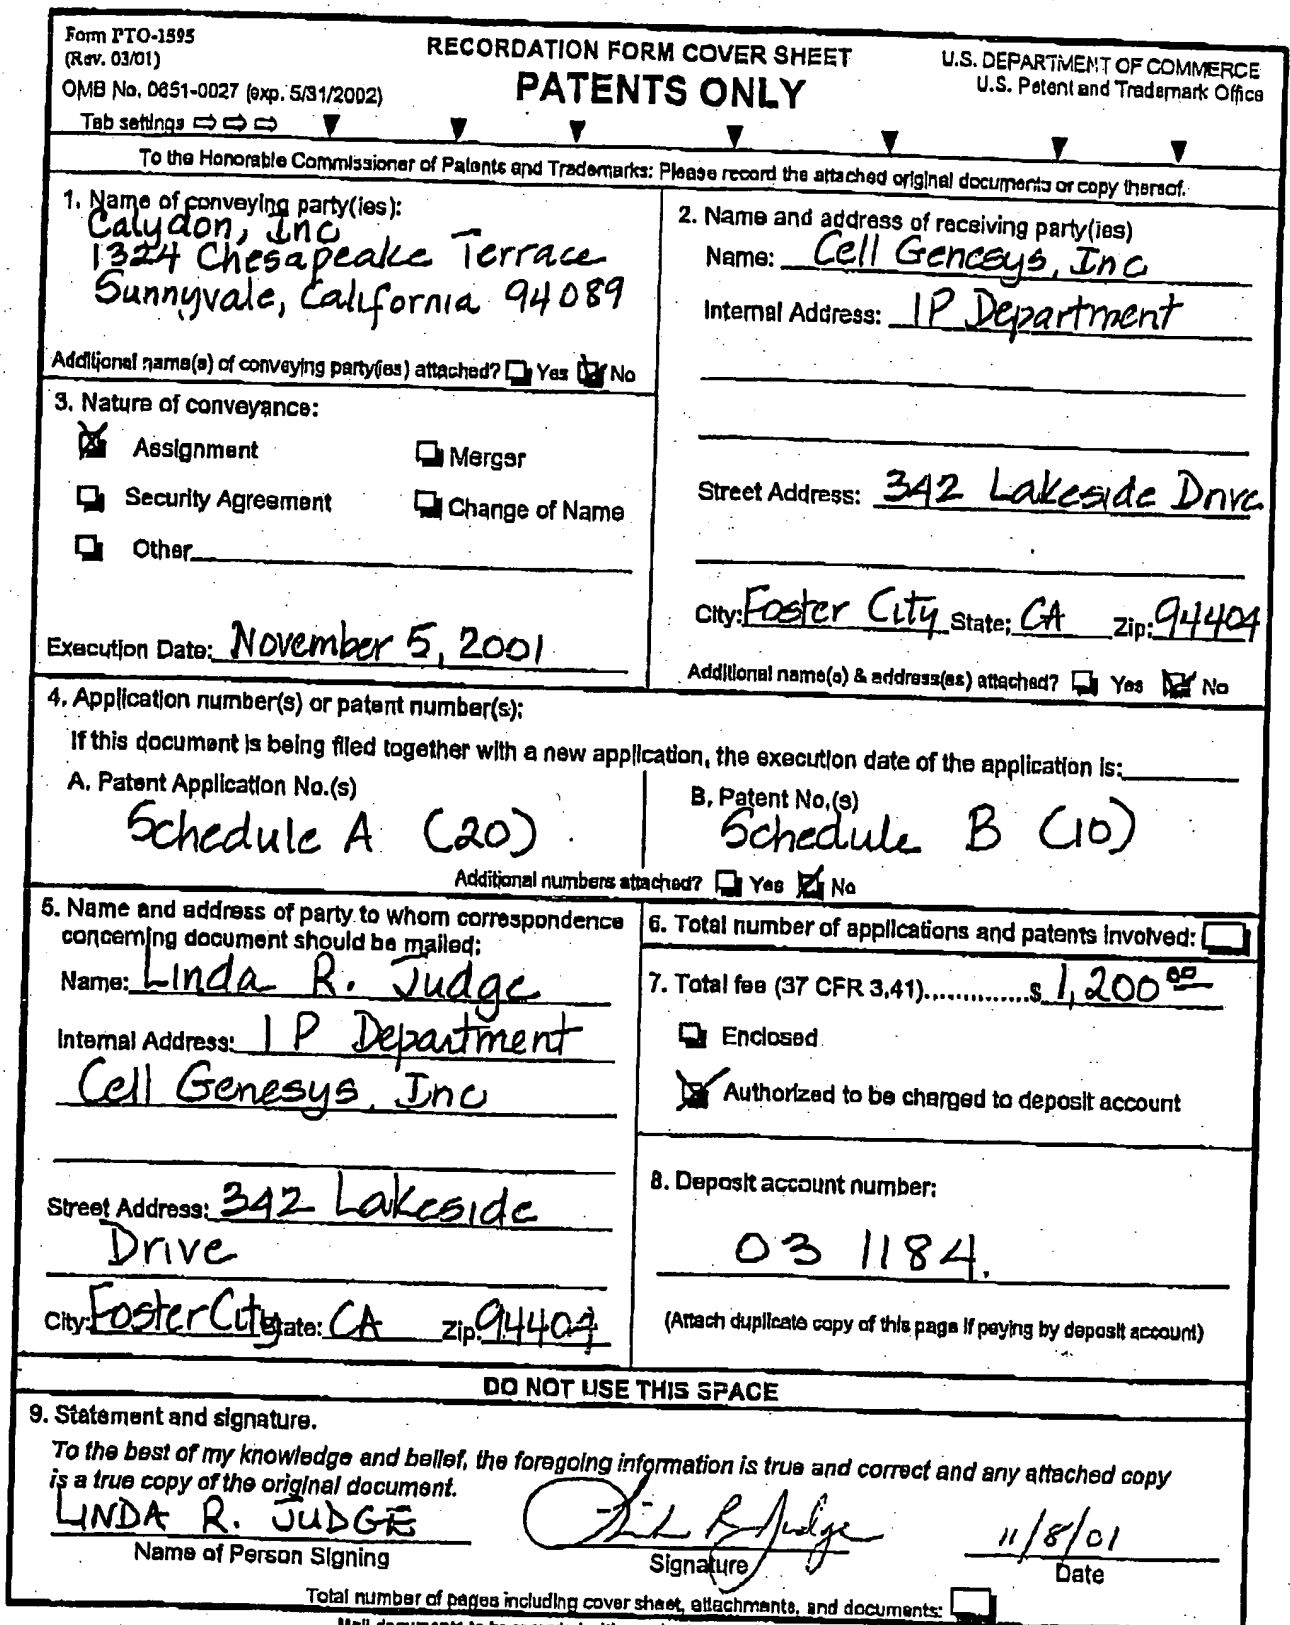 Form PTO-1595
(Rev. 03/01)
OMB No. 0651-0027 (exp. 5/31/2002)
Tab settings ⇨ ⇨ ⇨
RECORDATION FORM COVER SHEET
PATENTS ONLY
U.S. DEPARTMENT OF COMMERCE
U.S. Patent and Trademark Office
To the Honorable Commissioner of Patents and Trademarks: Please record the attached original documents or copy thereof.
1. Name of conveying party(ies):
Calydon, Inc
1324 Chesapeake Terrace
Sunnyvale, California 94089
Additional name(s) of conveying party(ies) attached? Yes No
2. Name and address of receiving party(ies)
Name: Cell Genesys, Inc
Internal Address: IP Department
Street Address: 342 Lakeside Drive
City: Foster City State: CA Zip: 94404
Additional name(s) & address(es) attached? Yes No
3. Nature of conveyance:
Assignment Merger
Security Agreement Change of Name
Other
Execution Date: November 5, 2001
4. Application number(s) or patent number(s):
If this document is being filed together with a new application, the execution date of the application is:
A. Patent Application No.(s)
Schedule A (20)
B. Patent No.(s)
Schedule B (10)
Additional numbers attached? Yes No
5. Name and address of party to whom correspondence
concerning document should be mailed:
Name: Linda R. Judge
Internal Address: IP Department
Cell Genesys, Inc
Street Address: 342 Lakeside
Drive
City: Foster City State: CA Zip: 94404
6. Total number of applications and patents involved:
7. Total fee (37 CFR 3.41)..............$ 1,200 00
Enclosed
Authorized to be charged to deposit account
8. Deposit account number:
03 1184.
(Attach duplicate copy of this page if paying by deposit account)
DO NOT USE THIS SPACE
9. Statement and signature.
To the best of my knowledge and belief, the foregoing information is true and correct and any attached copy
is a true copy of the original document.
LINDA R. JUDGE
Name of Person Signing
Linda R Judge
Signature
11/8/01
Date
Total number of pages including cover sheet, attachments, and documents: